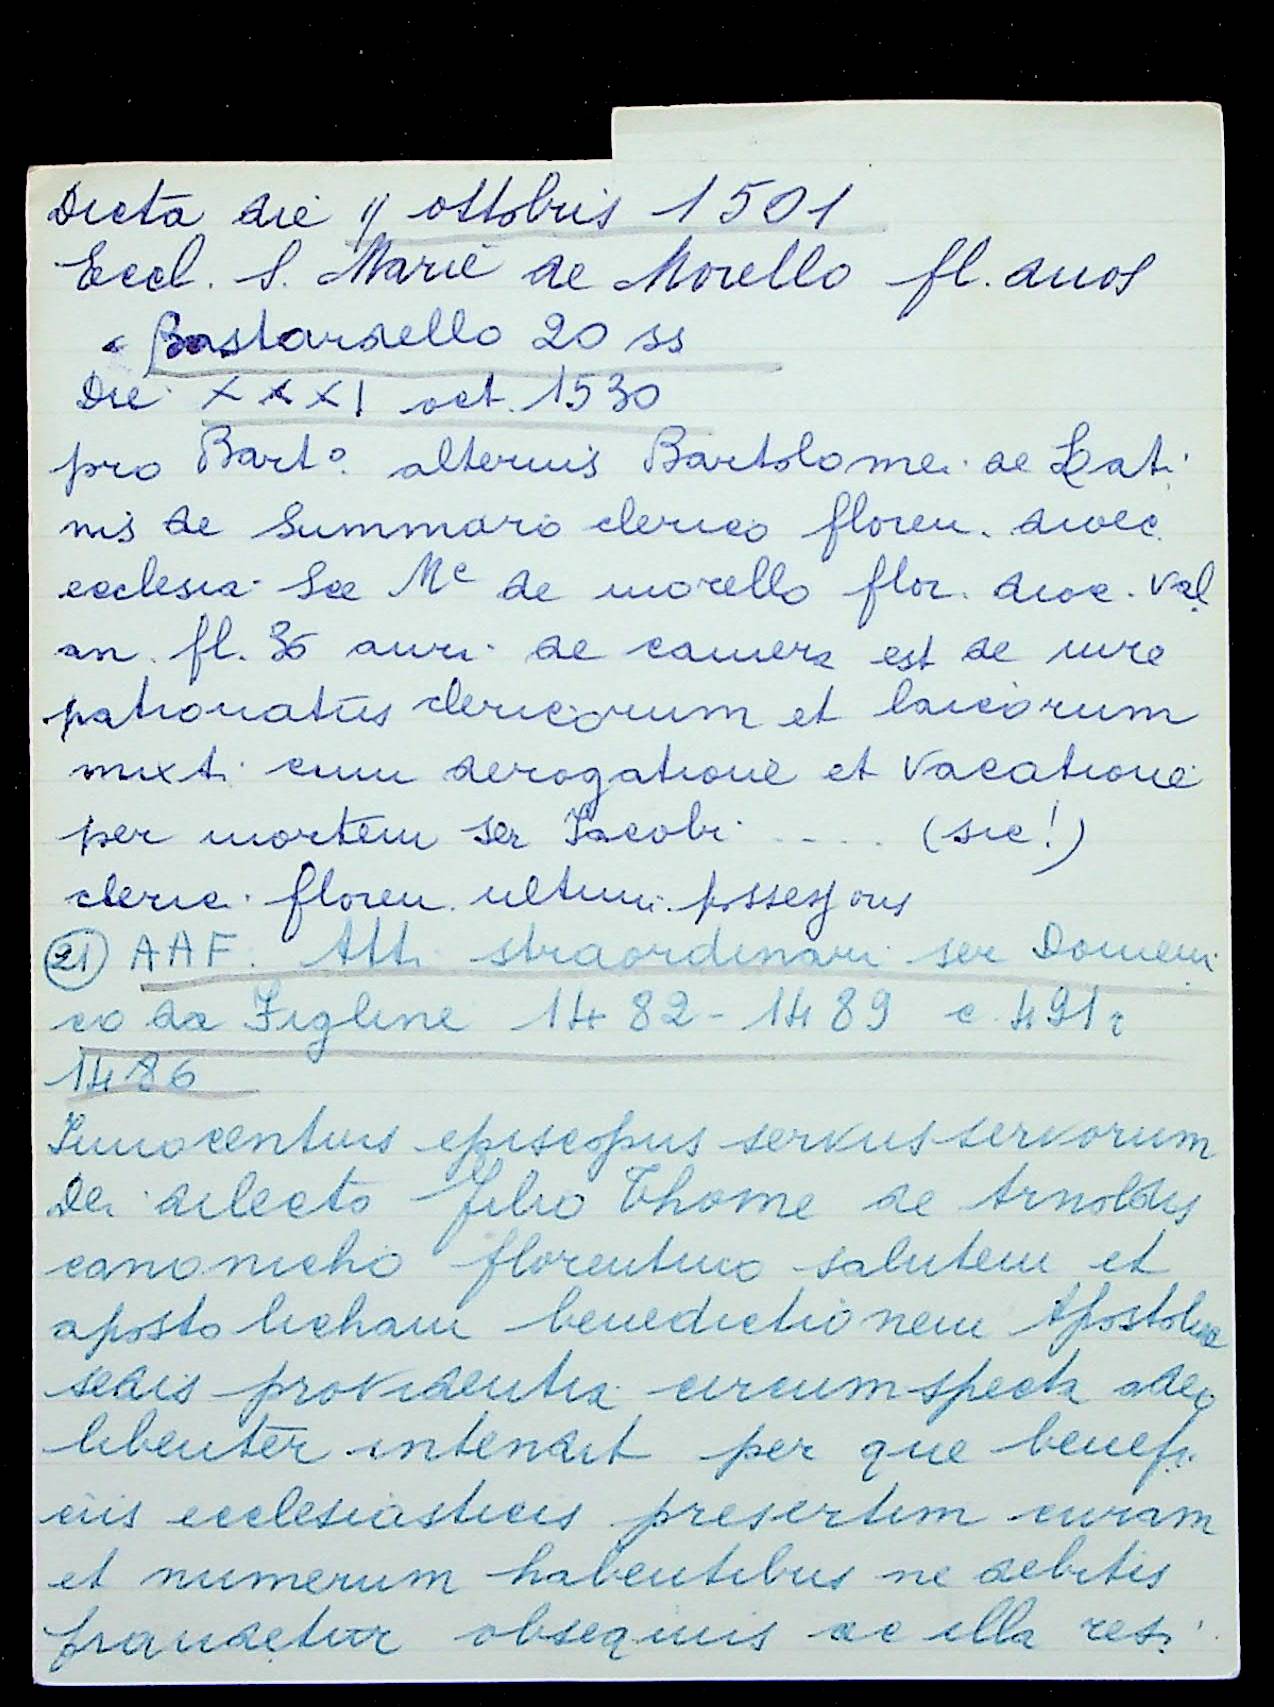 Dicta die 11 ottobris 1501
Eccl. S. Marie de Morello fl. duos
Bastardello 20 ss
Die XXXI oct. 1530
pro Barto. alterius Bartolomei de Lati
nis de Summaro clerico floren. dioec.
ecclesia See Me de morello flor. dioc. Val
an. fl. 36 auri de camera est de iure
patronatus clericorum et laicorum
mixti cum derogatione et vacatione
per mortem ser Jacobi .... (sic!)
clerici floren. ultimi possessoris
21 AAF. Atti straordinari ser Domeni
co da Figline 1482-1489 c. 491r
1486
Innocentius episcopus servus servorum
Dei dilecto filio Thome de Arnoldis
canonicho florentino salutem et
apostolicham benedictionem Apostolice
sedis providentia circumspecta adeo
libenter intendit per que benefi
ciis ecclesiasticis presertim curam
et numerum habentibus ne debitis
fraudetur obsequiis ac illa resi